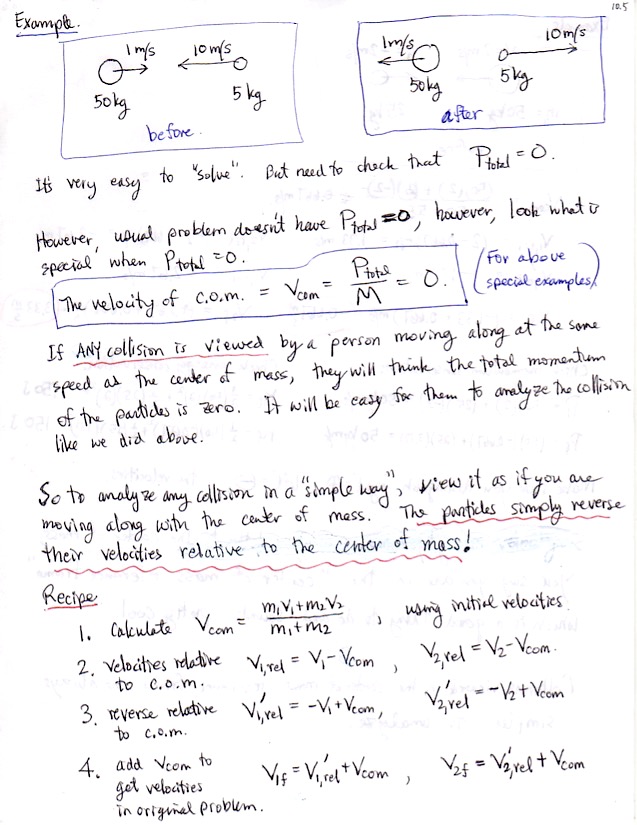 10.5
Example.
1m/s 10m/s
50kg 5kg
before.
1m/s 10m/s
50kg 5kg
after
It's very easy to "solve". But need to check that Ptotal = 0.
However, usual problem doesn't have Ptotal = 0, however, look what is
special when Ptotal = 0.
The velocity of c.o.m. = Vcom = Ptotal/M = 0.
(For above
special examples)
If ANY collision is viewed by a person moving along at the same
speed as the center of mass, they will think the total momentum
of the particles is zero. It will be easy for them to analyze the collision
like we did above.
So to analyze any collision in a "simple way", view it as if you are
moving along with the center of mass. The particles simply reverse
their velocities relative to the center of mass!
Recipe
1. Calculate Vcom = (m1V1+m2V2)/(m1+m2), using initial velocities.
2. velocities relative V1,rel = V1-Vcom, V2,rel = V2-Vcom.
to c.o.m.
3. reverse relative V'1,rel = -V1+Vcom, V'2,rel = -V2+Vcom
to c.o.m.
4. add Vcom to V1f = V'1,rel+Vcom, V2f = V'2,rel+Vcom
get velocities
in original problem.